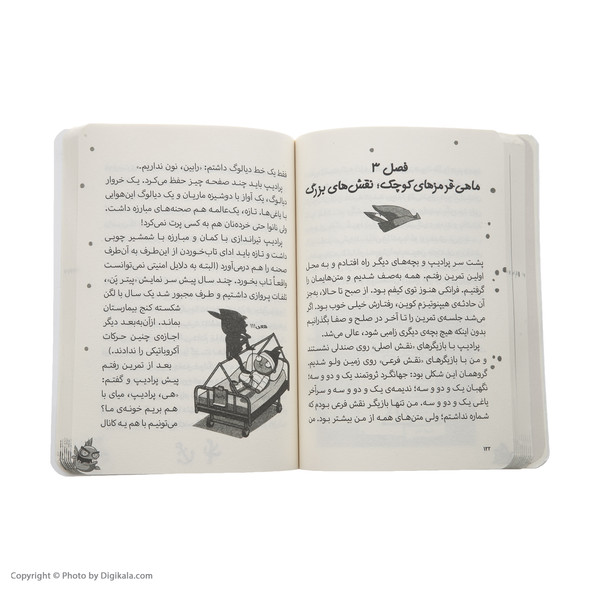 فصل ۳
ماهی قرمزهای کوچک؛ نقش‌های بزرگ
پشت سر پرادیپ و بچه‌های دیگر راه افتادم و به محل
اولین تمرین رفتم. همه به‌صف شدیم و متن‌هایمان را
گرفتیم. فرانکی هنوز توی کیفم بود. از صبح تا حالا، به‌جز
آن حادثه‌ی هیپنوتیزم کوین، رفتارش خیلی خوب بود. اگر
می‌شد جلسه‌ی تمرین را تا آخر در صلح و صفا بگذرانیم
بدون اینکه هیچ بچه‌ی دیگری زامبی شود، عالی می‌شد.
پرادیپ با بازیگرهای، نقش اصلی، روی صندلی نشستند
و من با بازیگرهای، نقش فرعی، روی زمین ولو شدیم.
گروهمان این شکلی بود: جهانگرد ثروتمند یک و دو و سه؛
نگهبان یک و دو و سه؛ ندیمه‌ی یک و دو و سه و
یاغی یک و دو و سه. من تنها بازیگر نقش فرعی بودم که
شماره نداشتم؛ ولی متن‌های همه از من بیشتر بود. من
۱۲۲
فقط یک خط دیالوگ داشتم: «رابین، نون نداریم.»
پرادیپ باید چند صفحه چیز حفظ می‌کرد. یک خروار
دیالوگ، یک آواز با دوشیزه ماریان و یک دیالوگ این‌هوایی
با یاغی‌ها، تازه، یک‌عالمه هم صحنه‌های مبارزه داشت.
ولی نانوا حتی خرده‌نان هم به کسی پرت نمی‌کرد!
پرادیپ تیراندازی با کمان و مبارزه با شمشیر چوبی
داشت و تازه باید ادای تاب‌خوردن از این‌طرف به آن‌طرف
صحنه را هم درمی‌آورد (البته به دلایل امنیتی نمی‌توانست
واقعاً تاب بخورد. چند سال پیش سر نمایش «پیتر پن»،
تلفات پروازی داشتیم و طرف مجبور شد یک سال با لگن
شکسته کنج بیمارستان
بماند. ازآن‌به‌بعد دیگر
اجازه‌ی چنین حرکات
آکروباتیکی را ندادند.)
بعد از تمرین رفتم
پیش پرادیپ و گفتم:
«هی، پرادیپ، میای با
هم بریم خونه‌ی ما؟
می‌تونیم با هم یه کانال
Copyright © Photo by Digikala.com